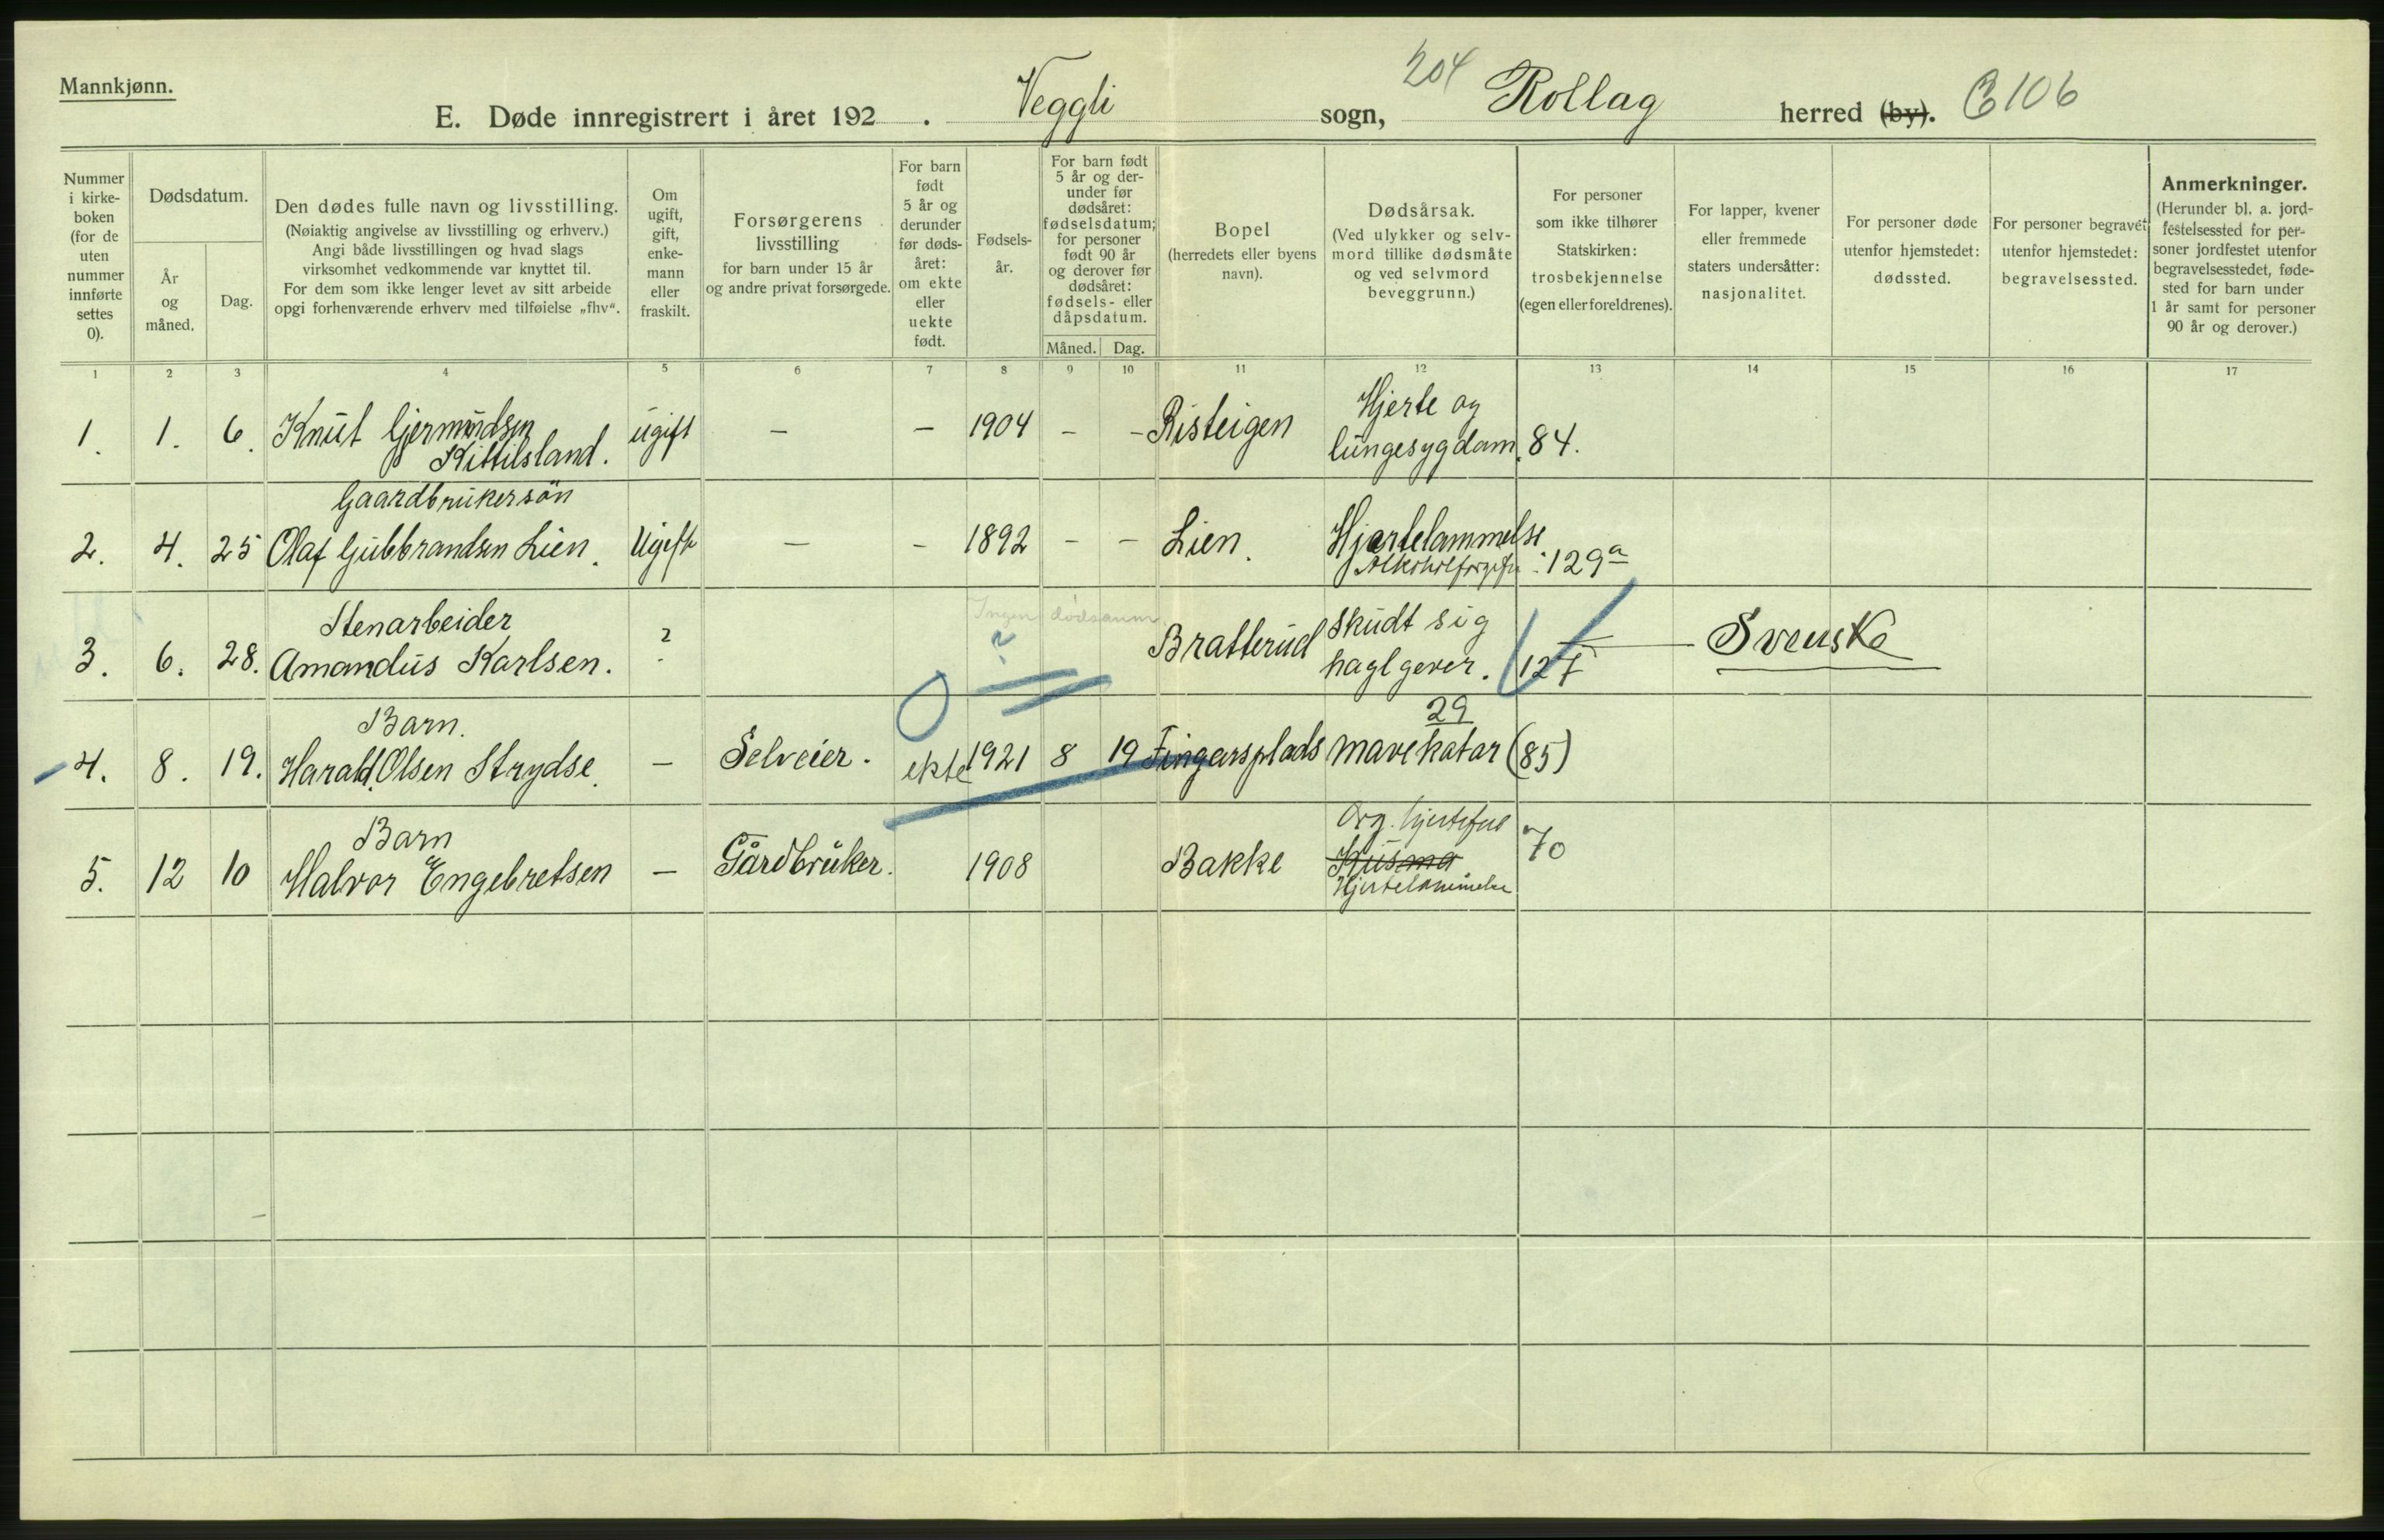 Mannkjønn.
E. Døde innregistrert i året 192 . Veggli sogn, 204 Rollag herred (by). C106
Nummer i kirke-boken (for de uten nummer innførte settes 0).
Dødsdatum.
År og måned.
Dag.
Den dødes fulle navn og livsstilling.
(Nøiaktig angivelse av livsstilling og erhverv.)
Angi både livsstillingen og hvad slags
virksomhet vedkommende var knyttet til.
For dem som ikke lenger levet av sitt arbeide
opgi forhenværende erhverv med tilføielse „fhv“.
Om ugift, gift, enke-mann eller fraskilt.
Forsørgerens
livsstilling
for barn under 15 år
og andre privat forsørgede.
For barn født 5 år og derunder før døds-året: om ekte eller uekte født.
Fødsels-år.
For barn født 5 år og der-under før dødsåret: fødselsdatum; for personer født 90 år og derover før dødsåret: fødsels- eller dåpsdatum.
Måned. Dag.
Bopel
(herredets eller byens navn).
Dødsårsak.
(Ved ulykker og selv-mord tillike dødsmåte og ved selvmord beveggrunn.)
For personer
som ikke tilhører
Statskirken:
trosbekjennelse
(egen eller foreldrenes).
For lapper, kvener
eller fremmede
staters undersåtter:
nasjonalitet.
For personer døde
utenfor hjemstedet:
dødssted.
For personer begravet
utenfor hjemstedet:
begravelsessted.
Anmerkninger.
(Herunder bl. a. jord-festelsessted for per-soner jordfestet utenfor begravelsesstedet, føde-sted for barn under 1 år samt for personer 90 år og derover.)
1 2 3 4 5 6 7 8 9 10 11 12 13 14 15 16 17
1. 1. 6. Knut Gjermundsen Kittilsland. ugift – – 1904 – – Risteigen Hjerte og lungesygdam. 84.
Gaardbrukersøn
2. 4. 25 Olaf Gubbrandsen Lien. Ugift – – 1892 – – Lien. Hjertelammelse : 129a
Ingen
Stenarbeider
3. 6. 28. Amandus Karlsen. ? ? Bratterud Skudt sig haglgever. 127 Svenske
Barn.
29
4. 8. 19. Harald Olsen Strydse. – Selveier. ekte 1921 8 19 Fingarsplads Mavekatar (85)
Barn
5. 12 10 Halvor Engebretsen – Gårdbruker. 1908 Bakke Org. hjertefeil Kusma Hjertelammelse 70